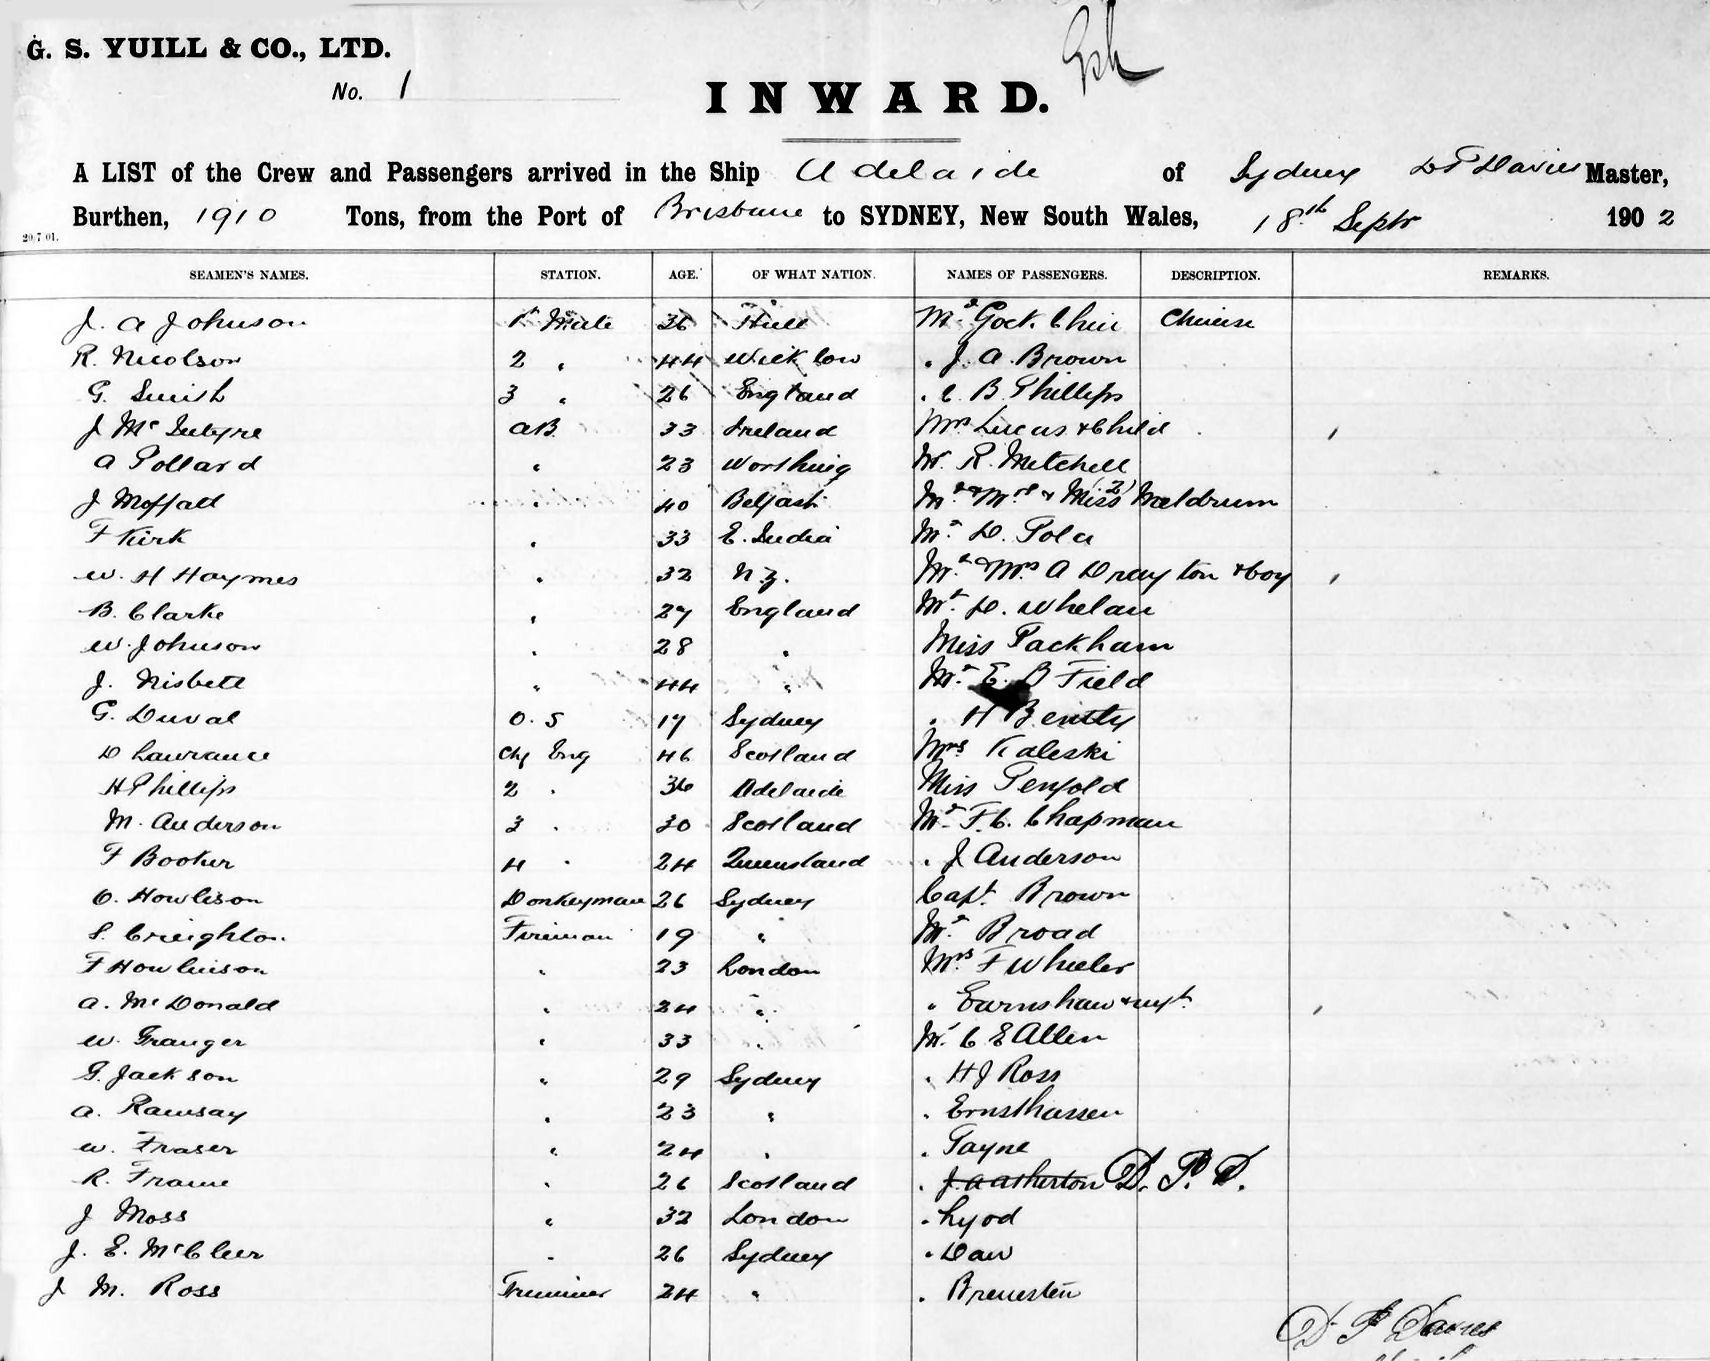 G. S. YUILL & CO., LTD.
No. 1
INWARD.
A LIST of the Crew and Passengers arrived in the Ship Adelaide of Sydney D P Davies Master,
Burthen, 1910 Tons, from the Port of Brisbane to SYDNEY, New South Wales, 18th Septr 1902
20.7.01.
SEAMEN'S NAMES. STATION. AGE. OF WHAT NATION. NAMES OF PASSENGERS. DESCRIPTION. REMARKS.
J. A Johnson 1st Mate 36 Hull Mr Gock Chin Chinese
R. Nicolson 2 " 44 Wicklow " J. A. Brown
G. Smith 3 " 26 England " C B Phillips
J McIntyre AB 33 Ireland Mrs Lucas & Child
A Pollard " 23 Worthing Mr R. Mitchell
J Moffatt " 40 Belfast Mr & Mrs & Miss (2) Meldrum
F Kirk " 33 E. India Mr D. Pola
W. H Haymes " 32 N.Z. Mr & Mrs A Drayton & boy
B. Clarke " 27 England Mr D. Whelan
W. Johnson " 28 " Miss Packham
J. Nisbett " 44 " Mr E. B Field
G. Duval O. S 17 Sydney " H Bently
D Lawrance Chf Eng 46 Scotland Mrs Kaleski
H Phillips 2 " 36 Adelaide Miss Penfold
M. Anderson 3 " 30 Scotland Mr F. C. Chapman
F Booker 4 " 24 Queensland " J Anderson
O. Howlison Donkeyman 26 Sydney Capt. Brown
S. Creighton Fireman 19 " Mr Broad
F Howlinson " 23 London Mrs F Wheeler
A. McDonald " 24 " " Earnshaw & inft.
W. Granger " 33 " Mr C E Allen
G. Jackson " 29 Sydney " H J Ross
A. Ramsay " 23 " " Ernsthassen
W. Fraser " 24 " " Payne
R. Frame " 26 Scotland " J. A Atherton D. P. D.
J Moss " 32 London " Lyod
J. E. McCleer " 26 Sydney " Daw
J M. Ross Trimmer 24 " " Breuesten
D P Davies